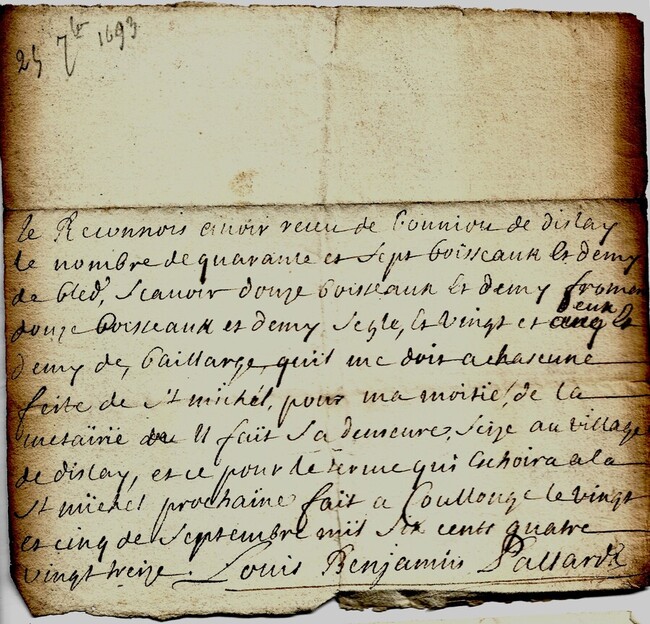 25 7bre 1693
Ie Reconnois avoir receu de Bouniou de dislay
le nombre de quarante et sept boisseaux Et demy
de bled, Scavoir douze boisseaux Et demy froment
douze boisseaux et demy Segle, Et Vingt et deux Et
demy de, baillarge, quil me doit a chascune
feste de St michel, pour ma moitié, de la
metairie ou Il fait Sa demeure, Seize au village
de dislay, et ce pour le terme qui Eschoira a la
St michel prochaine fait a Coullonge le vingt
et cinq de Septembre mil Six cents quatre
vingt treize. Louis Benjamin Pallardy